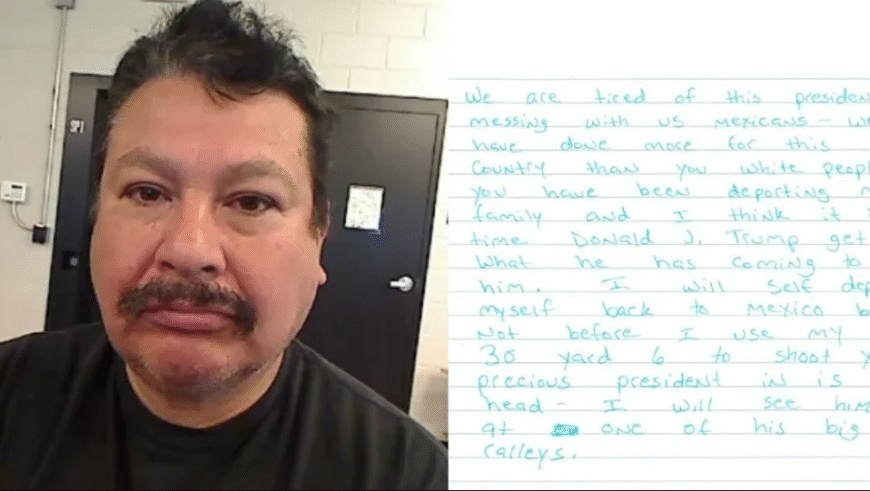 SPI
We are tired of this presiden
messing with us Mexicans - we
have done more for this
Country than you white peopl
you have been deporting m
family and I think it i
time Donald J. Trump get
What he has coming to
him. I will self dep
myself back to Mexico b
Not before I use my
30 yard 6 to shoot y
precious president in is
head - I will see him
at one of his big
ralleys.